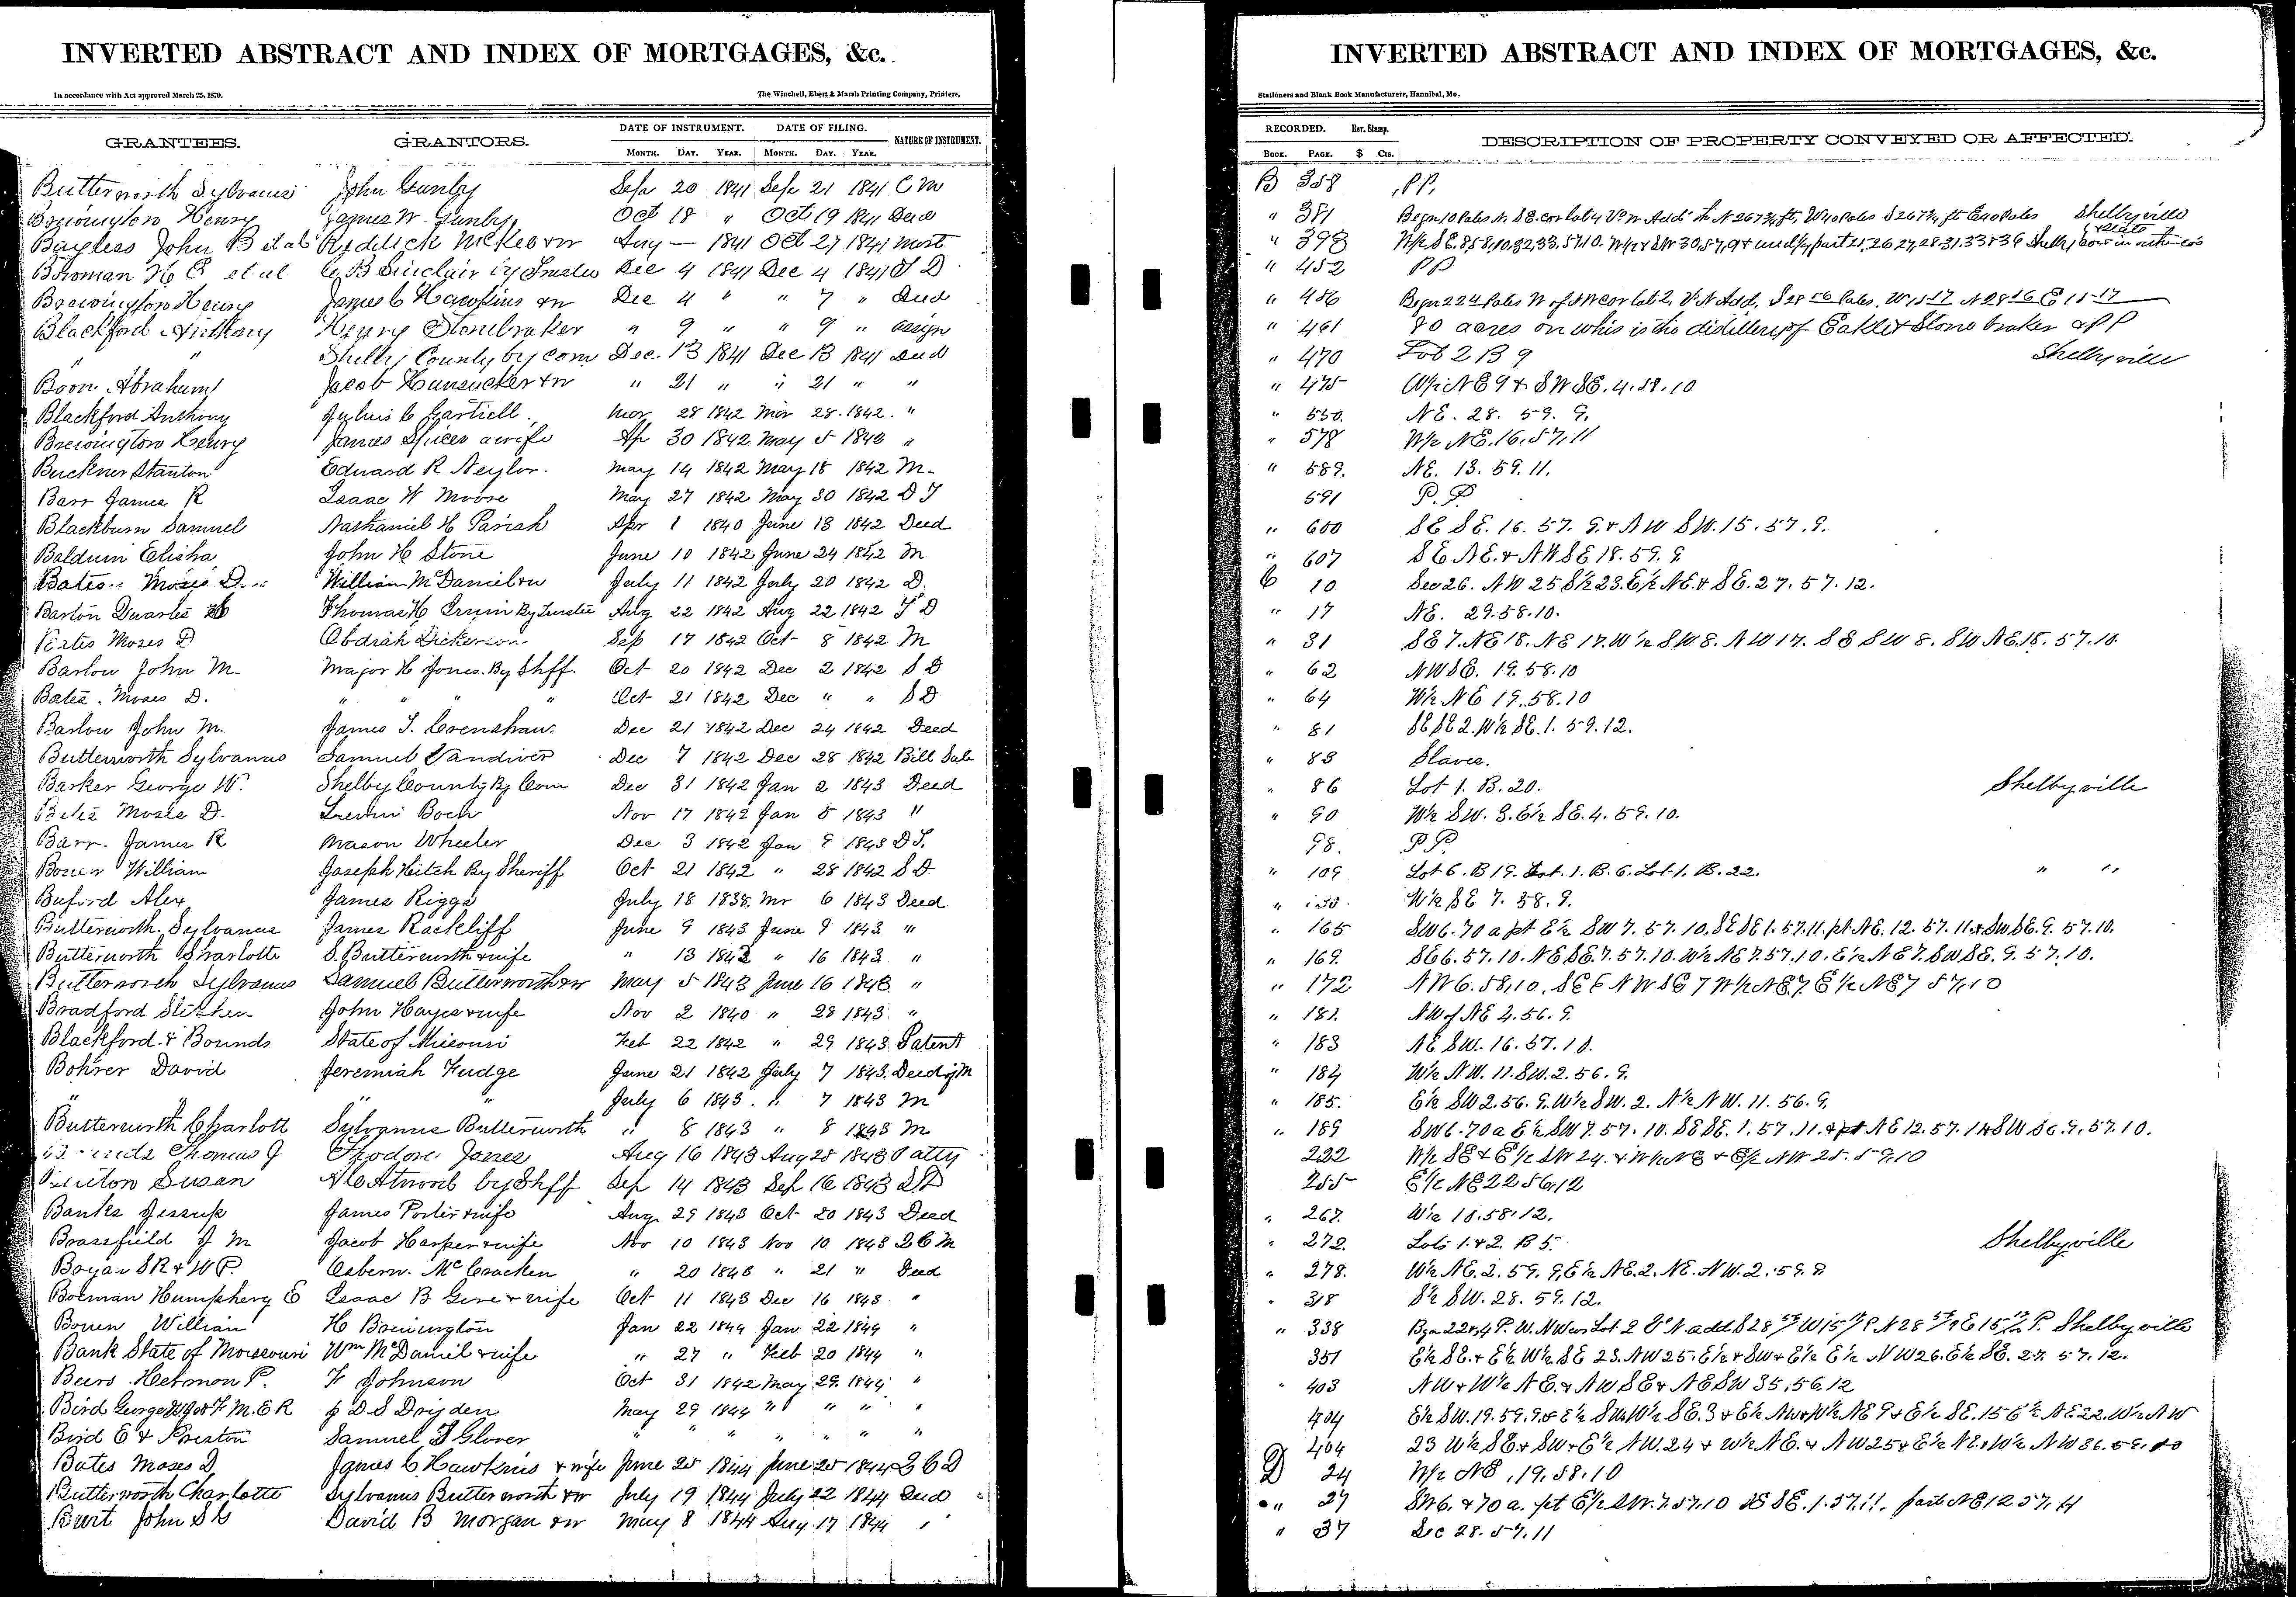 INVERTED ABSTRACT AND INDEX OF MORTGAGES, &c.
In accordance with Act approved March 25, 1870. The Winchell, Ebert & Marsh Printing Company, Printers,
GRANTEES. GRANTORS. DATE OF INSTRUMENT. DATE OF FILING. NATURE OF INSTRUMENT.
MONTH. DAY. YEAR. MONTH. DAY. YEAR.
Butterworth Sylvanus John Gunby Sep 20 1841 Sep 21 1841 C M
Brewington Henry James W Gunby Oct 18 " Oct 19 1841 Deed
Bayless John B et al Reddick McKee & w Aug — 1841 Oct 27 1841 Mort
Boman H E et al C B Sinclair by Trustee Dec 4 1841 Dec 4 1841 T D
Brewington Henry James C Hawkins & w Dec 4 " " 7 " Deed
Blackford Anthony Henry Stonebraker " 9 " " 9 " Assign
" " Shelby County by Com Dec 13 1841 Dec 13 1841 Deed
Boon Abraham Jacob Hunsucker & w " 21 " " 21 " "
Blackford Anthony Julius C Gartrell Mar 28 1842 Mar 28. 1842. "
Brewington Henry James Spicer & wife Ap 30 1842 May 5 1842 "
Buckner Stanton Edward R Neylor. May 14 1842 May 18 1842 M.
Barr James R Isaac W Moore May 27 1842 May 30 1842 D T
Blackburn Samuel Nathaniel H Parish Apr 1 1840 June 13 1842 Deed
Balduin Elisha John H Stone June 10 1842 June 24 1842 M
Bates Moses D. William McDaniel & w July 11 1842 July 20 1842 D.
Barton Quarles Thomas H Irwin By Trustee Aug 22 1842 Aug 22 1842 T D
Bates Moses D Obdiah Dickerson Sep 17 1842 Oct 8 1842 M
Barlow John M. Major H Jones. By Shff. Oct 20 1842 Dec 2 1842 S D
Bates. Moses D. " " " Oct 21 1842 Dec " " S D
Barlow John M. James T. Crenshaw. Dec 21 1842 Dec 24 1842 Deed
Butterworth Sylvanus Samuel Vandiver Dec 7 1842 Dec 28 1842 Bill Sale
Barker George W. Shelby County By Com Dec 31 1842 Jan 2 1843 Deed
Bates Moses D. Boch Nov 17 1842 Jan 5 1843 "
Barr. James R Mason Wheeler Dec 3 1842 Jan 9 1843 D T.
Bowen William Joseph Hitch By Sheriff Oct 21 1842 " 28 1842 S D
Buford Alex James Riggs July 18 1838. Mr 6 1843 Deed
Butterworth. Sylvanus James Rackliff June 9 1843 June 9 1843 "
Butterworth Charlotte S. Butterworth & wife " 13 1843 " 16 1843 "
Butterworth Sylvanus Samuel Butterworth & w May 5 1843 June 16 1843 "
Bradford Stephen John Hayes & wife Nov 2 1840 " 28 1843 "
Blackford & Bounds State of Missouri Feb 22 1842 " 29 1843 Patent
Bohrer David Jeremiah Fudge June 21 1842 July 7 1843. Deed of M
" " July 6 1843. " 7 1843 M
Butterworth Charlott Sylvanus Butterworth " 8 1843 " 8 1843 M
Thomas J Jones Aug 16 1843 Aug 28 1843 P atty
Susan Atwood by Shff Sep 14 1843 Sep 16 1843 S D
Banks Jessup James Porter & wife Aug 29 1843 Oct 20 1843 Deed
Brassfield J M Jacob Harper & wife Nov 10 1843 Nov 10 1843 M
Bogan S R & W P. Osbern. McCracken " 20 1843 " 21 " Deed
Boeman Humphery E Isaac B Gere & wife Oct 11 1843 Dec 16 1843 "
Bowen William H Brewington Jan 22 1844 Jan 22 1844 "
Bank State of Missouri Wm McDaniel & wife " 27 " Feb 20 1844 "
Beers Hermon P. F Johnson Oct 31 1842 May 29. 1844 "
Bird George M. E R J D S Dryden May 29 1844 " " " "
Bird E & Preston Samuel T Glover " " " " " "
Bates Moses D James C Hawkins & wife June 25 1844 June 25 1844
Butterworth Charlotte Sylvanus Butterworth & w July 19 1844 July 22 1844 Deed
Burt John David B Morgan & w May 8 1844 Aug 17 1844 "
INVERTED ABSTRACT AND INDEX OF MORTGAGES, &c.
Stationers and Blank Book Manufacturers, Hannibal, Mo.
RECORDED. Rev. Stamp. DESCRIPTION OF PROPERTY CONVEYED OR AFFECTED.
BOOK. PAGE. $ Cts.
B 358 P P,
" 381 Begn 10 Poles N. S E. cor lot 4 Vo N Addn Th N 267 3/4 ft, W 40 Poles S 267 3/4 ft E 40 Poles Shelbyville
" 393
" 452 P P
" 456
" 461 80 acres on whis is the distillery of Eakle & Stone braker & P P
" 470 Lot 2 B 9 Shelbyville
" 475 W½ N E 9 & S W S E. 4. 58. 10
" 550. N E. 28. 59. 9.
" 578 W½ N E. 16. 57. 11
" 589. N E. 13. 59. 11.
591 P. P.
" 600 S E S E. 16. 57. 9. & N W S W. 15. 57. 9.
" 607 S E N E. & N W S E 18. 59. 9
C 10 Sec 26. N W 25 S½ 23. E½ N E. & S E. 27. 57. 12.
" 17 N E. 29. 58. 10.
" 31 S E 7. N E 18. N E 17. W½ S W 8. N W 17. S E S W 8. S W N E. 18. 57. 10
" 62 N W S E. 19. 58. 10
" 64 W½ N E 19. 58. 10
" 81 S E S E 2. W½ S E. 1. 59. 12.
" 83 Slaves.
" 86 Lot 1. B. 20. Shelbyville
" 90 W½ S W. 3. E½ S E. 4. 59. 10.
98. P P.
" 109 Lot 6. B 19. Lot. 1. B. 6. Lot. 1. B. 22. " "
" 130 W½ S E 7. 58. 9.
" 165 S W 6. 70 a pt E½ S W 7. 57. 10. S E S E 1. 57. 11. pt N E. 12. 57. 11. & S W S E. 9. 57. 10.
" 169. S E 6. 57. 10. N E S E. 7. 57. 10. W½ N E 7. 57. 10. E½ N E 7. S W S E. 9. 57. 10.
" 172 N W 6. 58. 10. S E 6 N W S E 7 W½ N E 7. E½ N E 7 57. 10
" 181. N W of N E 4. 56. 9.
" 183 N E S W. 16. 57. 10.
" 184 W½ N W. 11. S W. 2. 56. 9.
" 185. E½ S W 2. 56. 9. W½ S W. 2. N½ N W. 11. 56. 9.
" 189 S W 6. 70 a E½ S W 7. 57. 10. S E S E. 1. 57. 11. & pt N E 12. 57. 11 & S W S E. 9. 57. 10.
222 W½ S E & E½ S W 24. & W½ N E & E½ N W 25. 59. 10
255 E½ N E 22 56. 12
" 267. W½ 18. 58. 12.
" 272. Lots 1. & 2. B 5. Shelbyville
" 278. W½ N E. 2. 59. 9. E½ N E. 2. N E. N W. 2. 59. 9
" 318 S½ S W. 28. 59. 12.
" 338 Shelbyville
351 E½ S E. & E½ W½ S E 23. N W 25. E½ & S W & E½ E½ N W 26. E½ S E. 27. 57. 12.
" 403 N W & W½ N E. & N W S E & N E S W 35. 56. 12
404 E½ S W. 19. 59. 9. & E½ S W. W½ S E. 3 & E½ N W & W½ N E 9 & E½ S E. 15 E½ N E 22. W½ N W
404 23 W½ S E. & S W & E½ N W. 24 & W½ N E. & N W 25 & E½ N E. & W½ N W 36. 59. 10
D 24 W½ N E, 19, 58. 10
" 27 S W 6. & 70 a. pt E½ S W. 7. 57. 10 S E S E. 1. 57. 11. part N E 12 57. 11
" 37 Sec 28. 57. 11